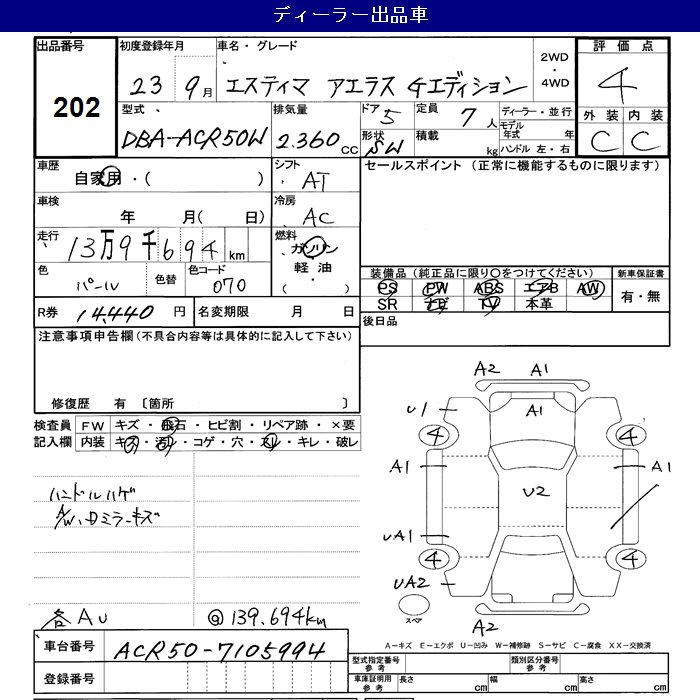 ディーラー出品車
出品番号 初度登録年月 車名・グレード 2WD・4WD 評価点
202 23 9月 エスティマ アエラス Gエディション 4
型式 排気量 ドア 5 定員 7人 ディーラー・並行 外装 内装
DBA-ACR50W 2.360 CC 形状 SW 積載 kg モデル年式 年 ハンドル 左・右 C C
車歴 シフト セールスポイント (正常に機能するものに限ります)
自家用・( ) AT
車検 冷房
年 月( 日) AC
走行 13万9千694 km 燃料 ガソリン
色 色替 色コード 軽油 装備品 (純正品に限り○をつけてください) 新車保証書
パール 070 ( ) PS PW ABS エアB AW 有・無
SR ナビ TV 本革
R券 14,440 円 名変期限 月 日 後日品
注意事項申告欄(不具合内容等は具体的に記入して下さい)
修復歴 有 〔箇所 〕
検査員 FW キズ・飛石・ヒビ割・リペア跡・×要
記入欄 内装 キズ・汚レ・コゲ・穴・スレ・キレ・破レ
A2 A1
U1 A1
4 4
A1 A1
U2
UA1
4 4
UA2
スペア
A2
ハンドルハゲ
A/W、Dミラーキズ
各AU @139.694km
A-キズ E-エクボ U-凹み W-補修跡 S-サビ C-腐食 XX-交換済
車台番号 ACR50-7105994
登録番号
型式指定番号 参考 類別区分番号 参考
車庫証明用 参考 長さ cm 幅 cm 高さ cm